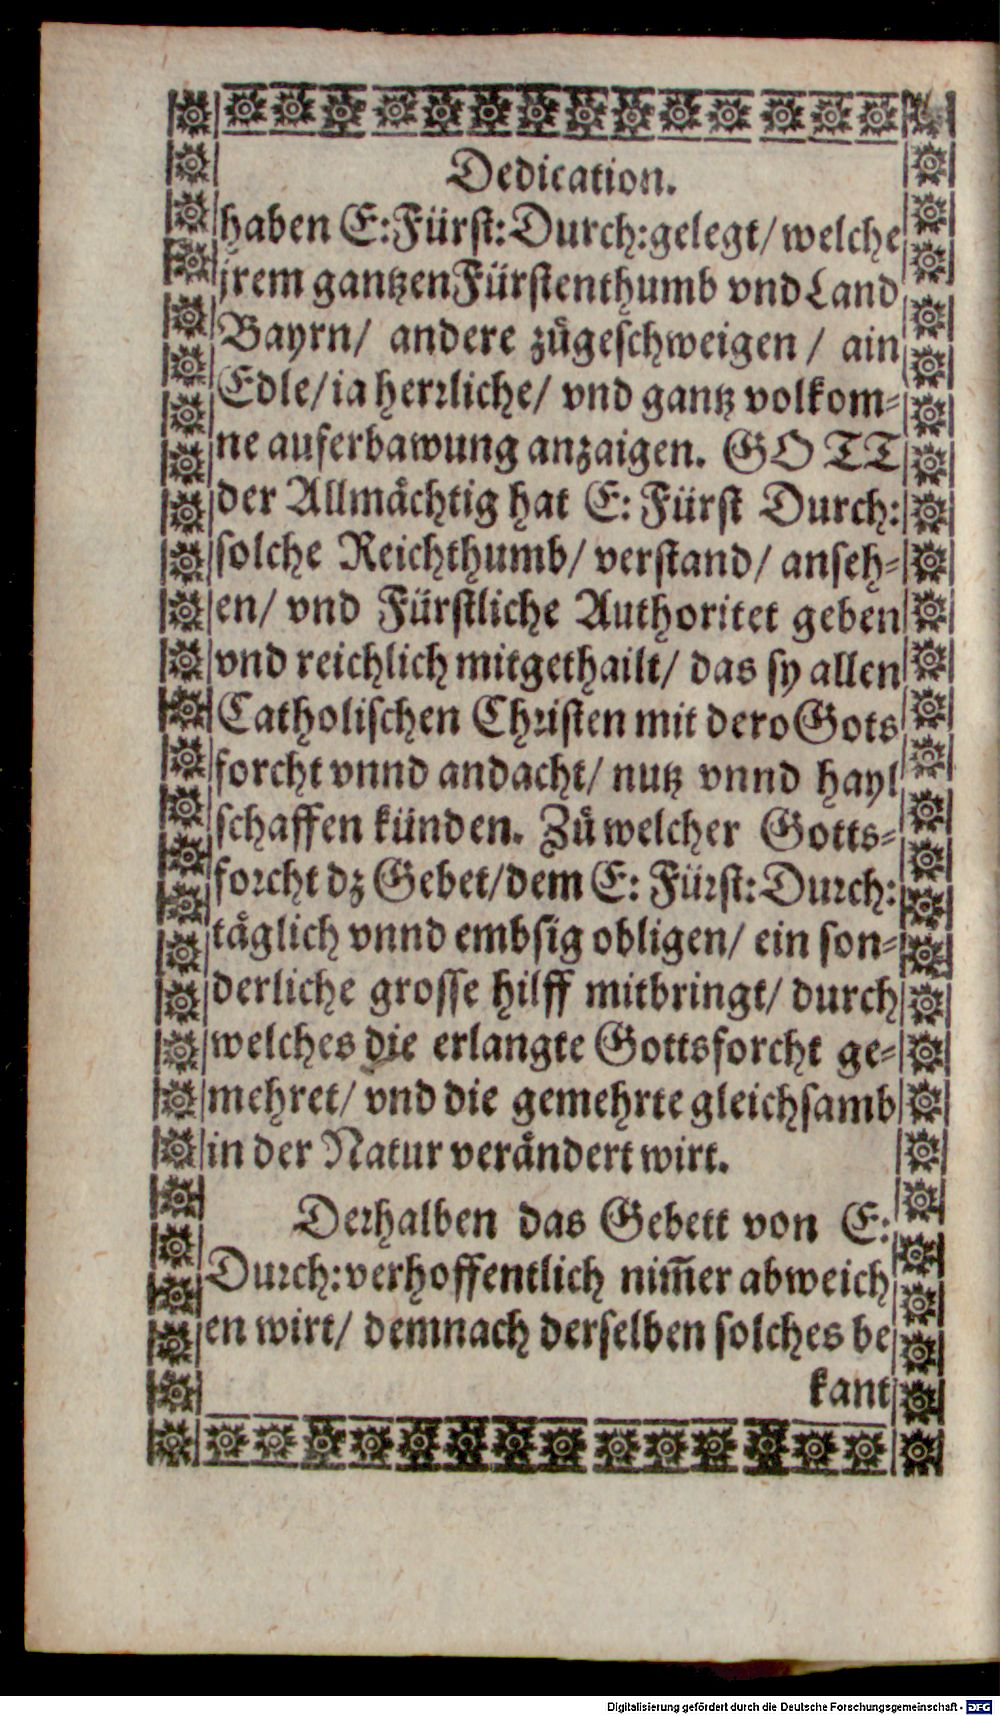 Dedication.
haben E: Fürst: Durch: gelegt/ welche
jrem gantzen Fürstenthumb vnd Land
Bayrn/ andere zůgeschweigen / ain
Edle/ ia herrliche/ vnd gantz volkom⸗
ne auferbawung anzaigen. GOTT
der Allmächtig hat E: Fürst Durch:
solche Reichthumb/ verstand/ anseh⸗
en/ vnd Fürstliche Authoritet geben
vnd reichlich mitgethailt/ das sy allen
Catholischen Christen mit dero Gots
forcht vnnd andacht/ nutz vnnd hayl
schaffen künden. Zů welcher Gotts⸗
forcht dz Gebet/ dem E: Fürst: Durch:
täglich vnnd embsig obligen/ ein son⸗
derliche grosse hilff mitbringt/ durch
welches die erlangte Gottsforcht ge⸗
mehret/ vnd die gemehrte gleichsamb
in der Natur verändert wirt.
Derhalben das Gebett von E:
Durch: verhoffentlich nim̃er abweich
en wirt/ demnach derselben solches be
kant
Digitalisierung gefördert durch die Deutsche Forschungsgemeinschaft - DFG